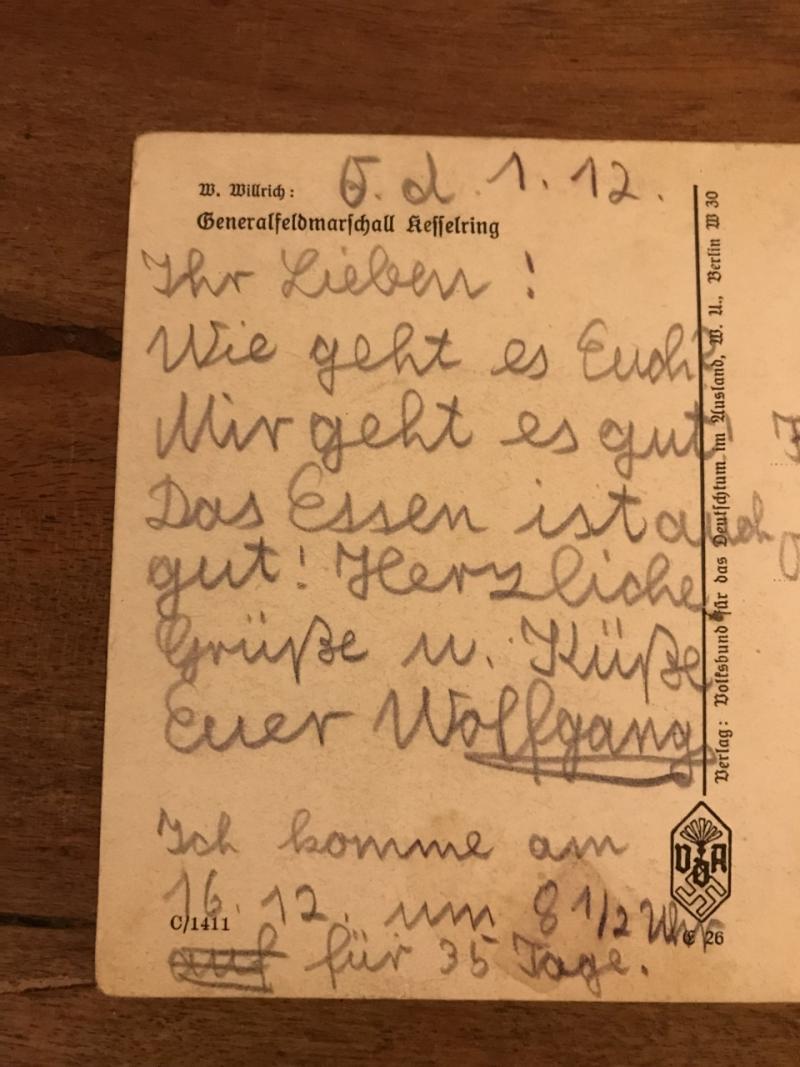 W. Willrich:
Generalfeldmarschall Kesselring
d. 1. 12.
Ihr Lieben!
Wie geht es Euch?
Mir geht es gut!
Das Essen ist auch
gut! Herzliche
Grüße u. Küße
Euer Wolfgang
Ich komme am
16. 12. um 8 1/2 Uhr
auf für 35 Tage.
C/1411
Verlag: Volksbund für das Deutschtum im Ausland, W. U., Berlin W 30
VDA
E 26